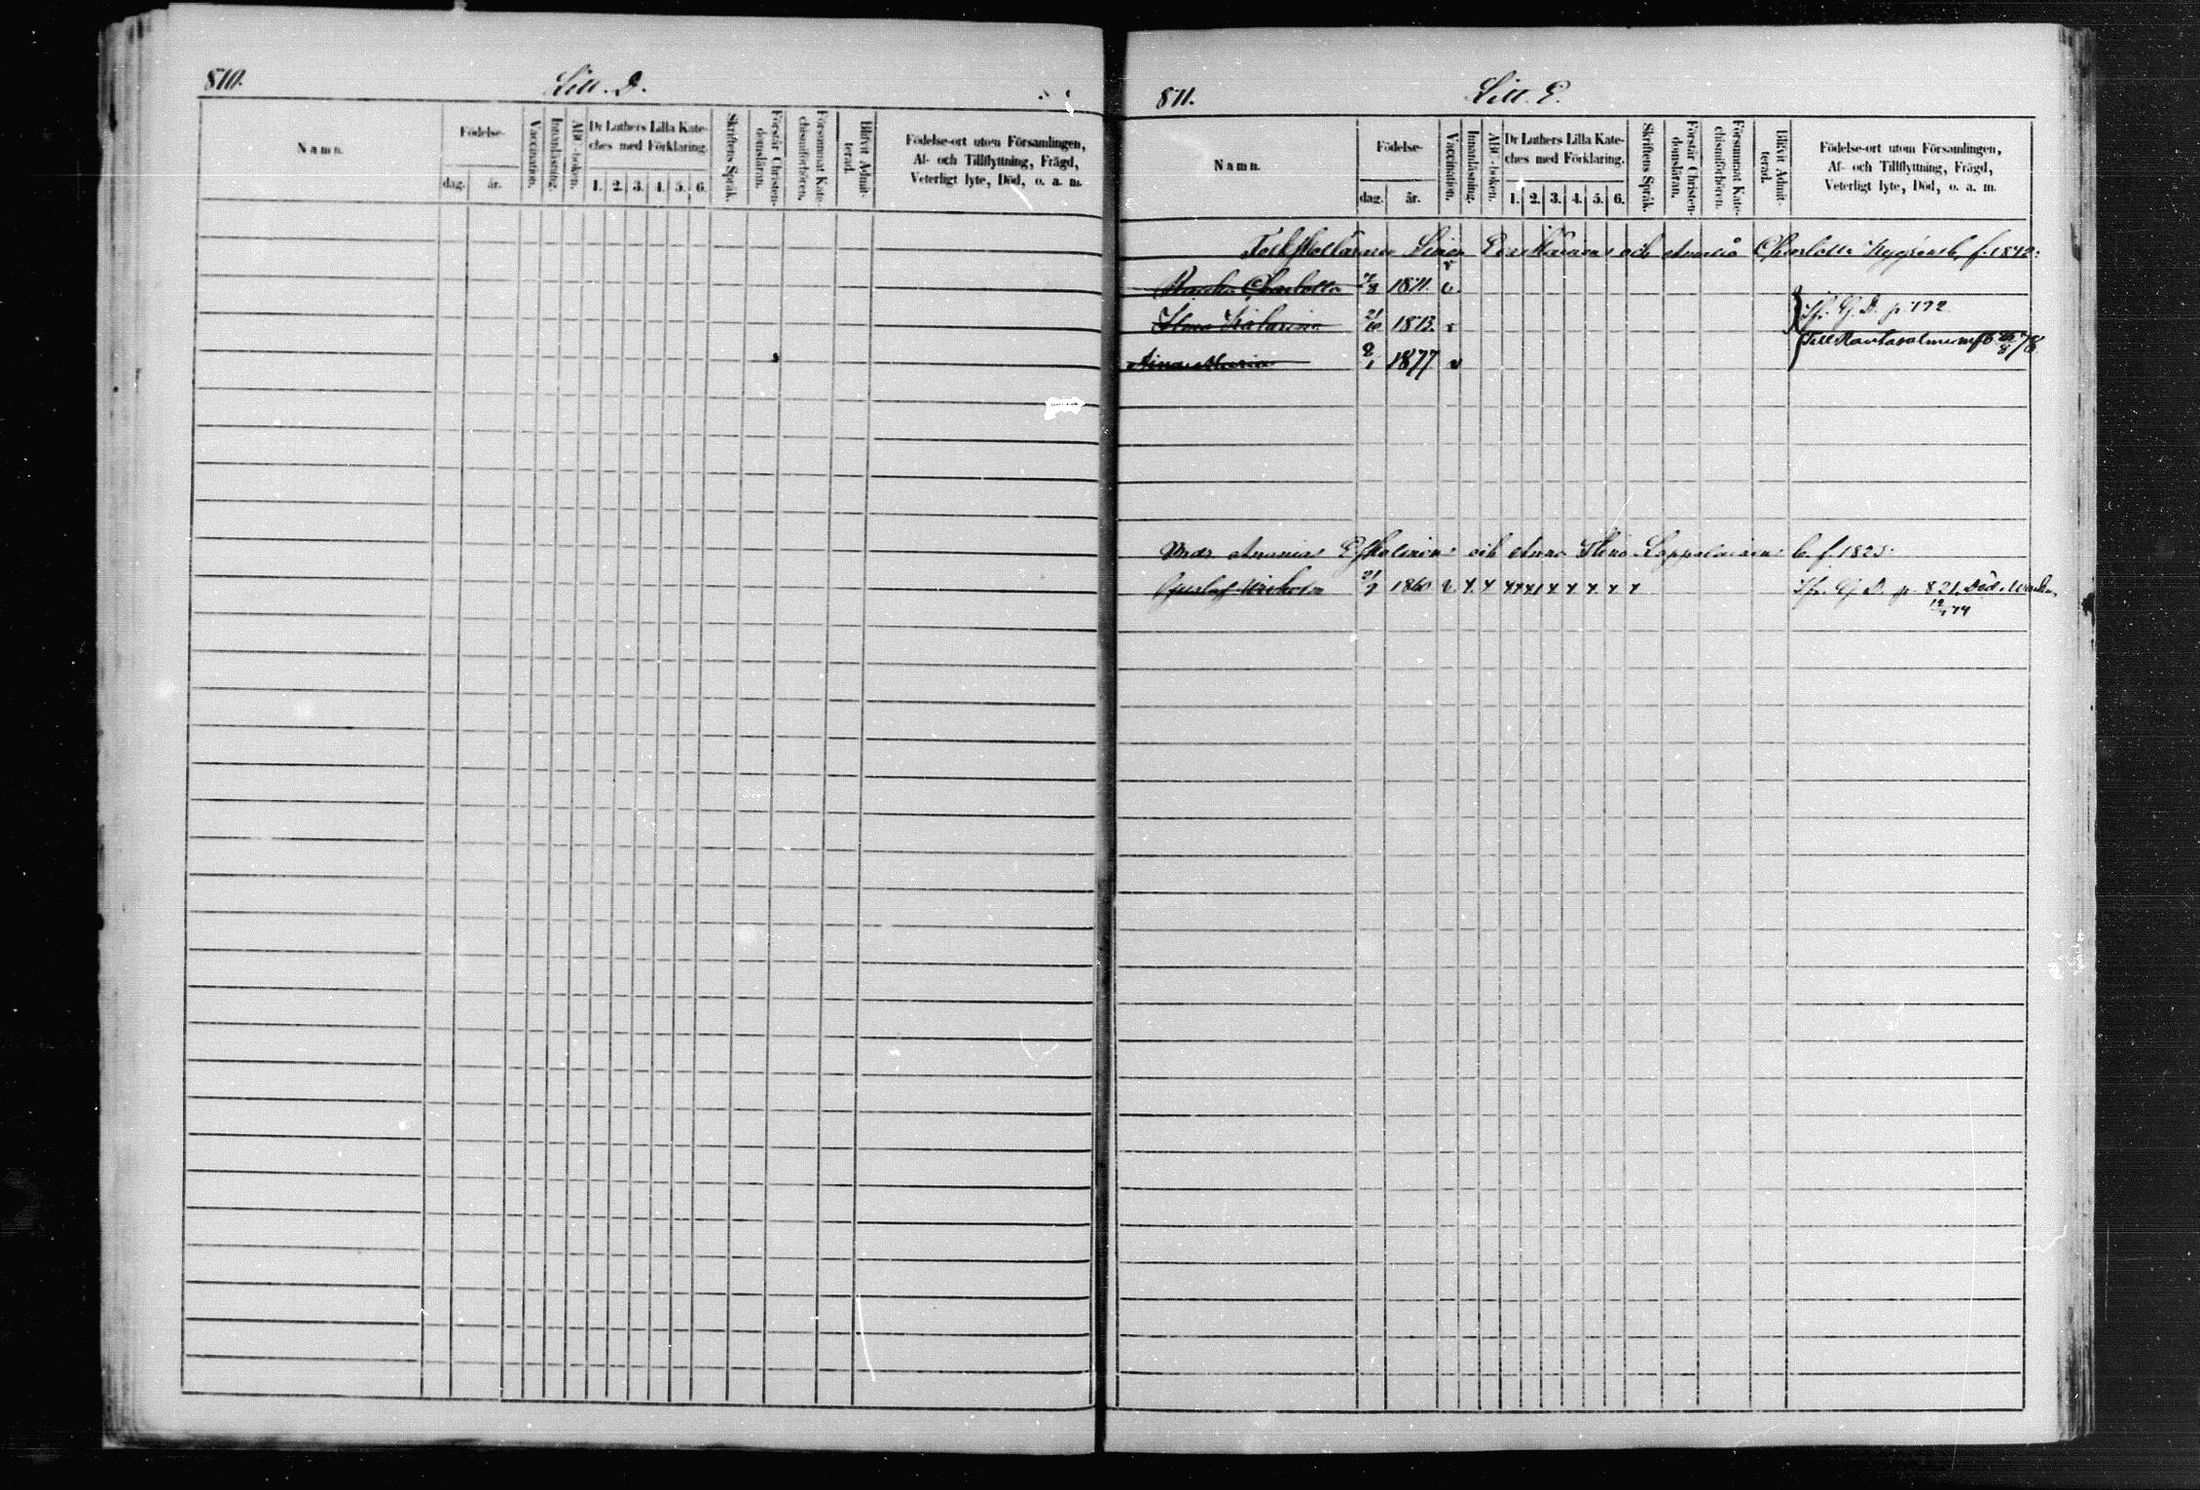 810.
Litt. D.
Namn.
Födelse-
dag.
år.
Vaccination.
Innanläsning.
ABC-boken.
Dr Luthers Lilla Kate-
ches med Förklaring.
1. 2. 3. 4. 5. 6.
Skriftens Språk.
Förstår Christen-
domsläran.
Försummat Kate-
chismiförhören.
Blifvit Admit-
terad.
Födelse-ort utom Församlingen,
Af- och Tillflyttning, Frägd,
Veterligt lyte, Död, o. a. m.
811.
Litt. E.
Namn.
Födelse-
dag.
år.
Vaccination.
Innanläsning.
ABC-boken.
Dr Luthers Lilla Kate-
ches med Förklaring.
1. 2. 3. 4. 5. 6.
Skriftens Språk.
Förstår Christen-
domsläran.
Försummat Kate-
chismiförhören.
Blifvit Admit-
terad.
Födelse-ort utom Församlingen,
Af- och Tillflyttning, Frägd,
Veterligt lyte, Död, o. a. m.
och Amalia Charlotta f. 1842.
Charlotta 1871. v
Katarina 1873.
Jfr. G. D. p. 172
Till Rantasalmi 78
Aina Maria 2/1 1877 v
Ananias Eskelinen och Anna Stina Lappalainen f. 1823.
Gustaf 1860 v x x x x x x x x x x x
Jfr. G. D. p. 821. Död